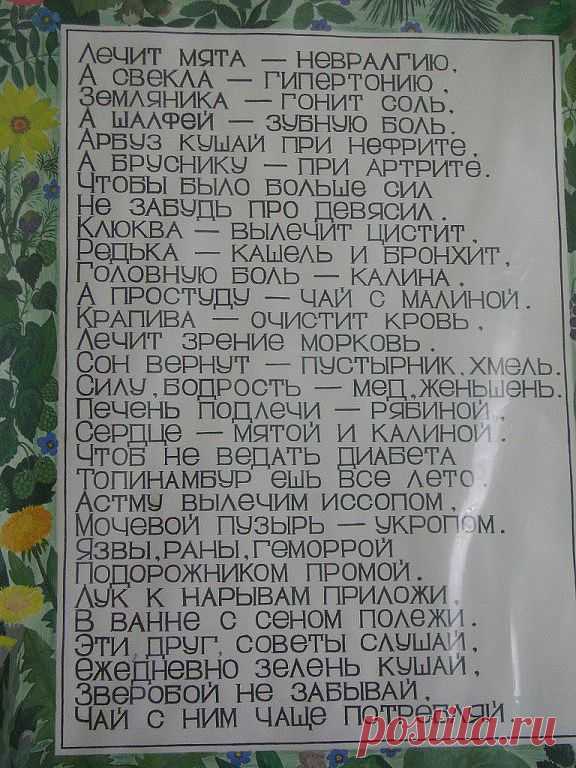 Лечит мята — невралгию,
А свекла — гипертонию,
Земляника — гонит соль,
А шалфей — зубную боль.
Арбуз кушай при нефрите,
А бруснику — при артрите.
Чтобы было больше сил
Не забудь про девясил.
Клюква — вылечит цистит,
Редька — кашель и бронхит,
Головную боль — калина,
А простуду — чай с малиной.
Крапива — очистит кровь,
Лечит зрение морковь.
Сон вернут — пустырник, хмель.
Силу, бодрость — мед, женьшень.
Печень подлечи — рябиной,
Сердце — мятой и калиной.
Чтоб не ведать диабета
Топинамбур ешь все лето.
Астму вылечим иссопом,
Мочевой пузырь — укропом.
Язвы, раны, геморрой
Подорожником промой.
Лук к нарывам приложи,
В ванне с сеном полежи.
Эти друг, советы слушай,
Ежедневно зелень кушай,
Зверобой не забывай,
Чай с ним чаще потребляй
postila.ru